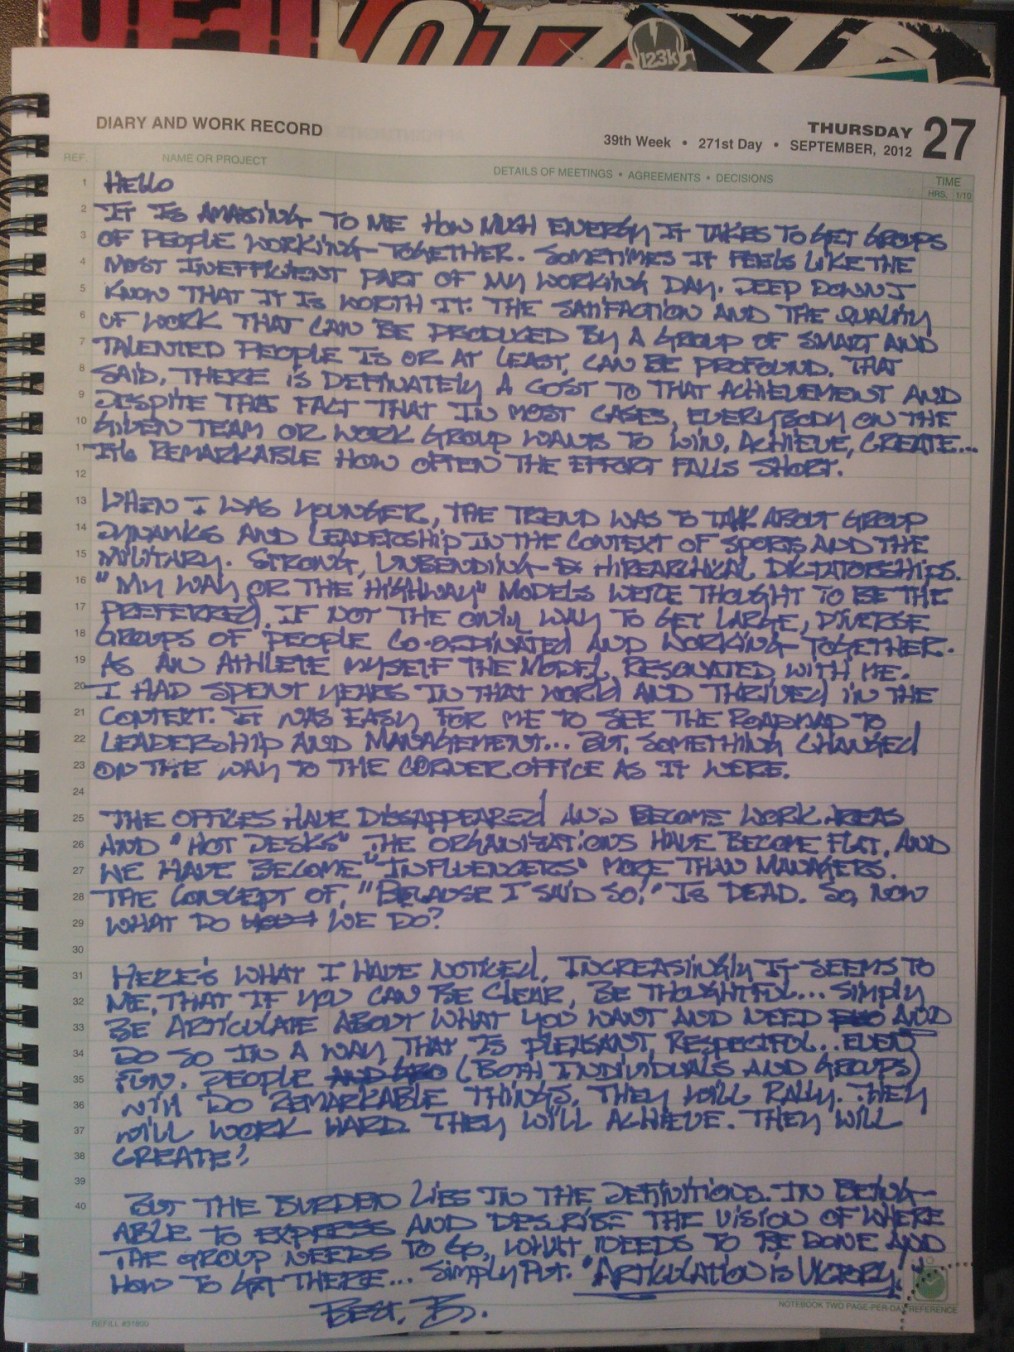 123k
DIARY AND WORK RECORD
THURSDAY 27
39th Week • 271st Day • SEPTEMBER, 2012
REF. NAME OR PROJECT DETAILS OF MEETINGS • AGREEMENTS • DECISIONS TIME
HRS. 1/10
1 HELLO
2 IT IS AMAZING TO ME HOW MUCH ENERGY IT TAKES TO GET GROUPS
3 OF PEOPLE WORKING TOGETHER. SOMETIMES IT FEELS LIKE THE
4 MOST INEFFICIENT PART OF MY WORKING DAY. DEEP DOWN I
5 KNOW THAT IT IS WORTH IT. THE SATIFACTION AND THE QUALITY
6 OF WORK THAT CAN BE PRODUCED BY A GROUP OF SMART AND
7 TALENTED PEOPLE IS OR AT LEAST, CAN BE PROFOUND. THAT
8 SAID, THERE IS DEFINATELY A COST TO THAT ACHIEVEMENT AND
9 DESPITE THE FACT THAT IN MOST CASES, EVERYBODY ON THE
10 GIVEN TEAM OR WORK GROUP WANTS TO WIN, ACHIEVE, CREATE...
11 ITS REMARKABLE HOW OFTEN THE EFFORT FALLS SHORT.
12
13 WHEN I WAS YOUNGER, THE TREND WAS TO TALK ABOUT GROUP
14 DYNAMICS AND LEADERSHIP IN THE CONTEXT OF SPORTS AND THE
15 MILITARY. STRONG, UNBENDING HIREARCHICAL DICTATORSHIPS.
16 "MY WAY OR THE HIGHWAY" MODELS WERE THOUGHT TO BE THE
17 PREFERRED, IF NOT THE ONLY WAY TO GET LARGE, DIVERSE
18 GROUPS OF PEOPLE CO-ORDINATED AND WORKING TOGETHER.
19 AS AN ATHLETE MYSELF THE MODEL, RESONATED WITH ME.
20 I HAD SPENT YEARS IN THAT WORLD AND THRIVED IN THE
21 CONTEXT. IT WAS EASY FOR ME TO SEE THE ROADMAP TO
22 LEADERSHIP AND MANAGEMENT... BUT, SOMETHING CHANGED
23 ON THE WAY TO THE CORNER OFFICE AS IT WERE.
24
25 THE OFFICES HAVE DISAPPEARED AND BECOME WORK AREAS
26 AND "HOT DESKS". THE ORGANIZATIONS HAVE BECOME FLAT, AND
27 WE HAVE BECOME "INFLUENCERS" MORE THAN MANAGERS.
28 THE CONCEPT OF, "BECAUSE I SAID SO," IS DEAD. SO, NOW
29 WHAT DO WE DO?
30
31 HERE'S WHAT I HAVE NOTICED, INCREASINGLY IT SEEMS TO
32 ME, THAT IF YOU CAN BE CLEAR, BE THOUGHTFUL... SIMPLY
33 BE ARTICULATE ABOUT WHAT YOU WANT AND NEED AND
34 DO SO IN A WAY THAT IS PLEASANT, RESPECTFUL.. EVEN
35 FUN. PEOPLE (BOTH INDIVIDUALS AND GROUPS)
36 WILL DO REMARKABLE THINGS. THEY WILL RALLY. THEY
37 WILL WORK HARD. THEY WILL ACHIEVE. THEY WILL
38 CREATE!
39
40 BUT THE BURDEN LIES IN THE DEFINITIONS. IN BEING
ABLE TO EXPRESS AND DESCRIBE THE VISION OF WHERE
THE GROUP NEEDS TO GO, WHAT NEEDS TO BE DONE AND
HOW TO GET THERE... SIMPLY PUT. "ARTICULATION IS VICTORY."
BEST, B.
NOTEBOOK TWO PAGE-PER-DAY REFERENCE
REFILL #31900